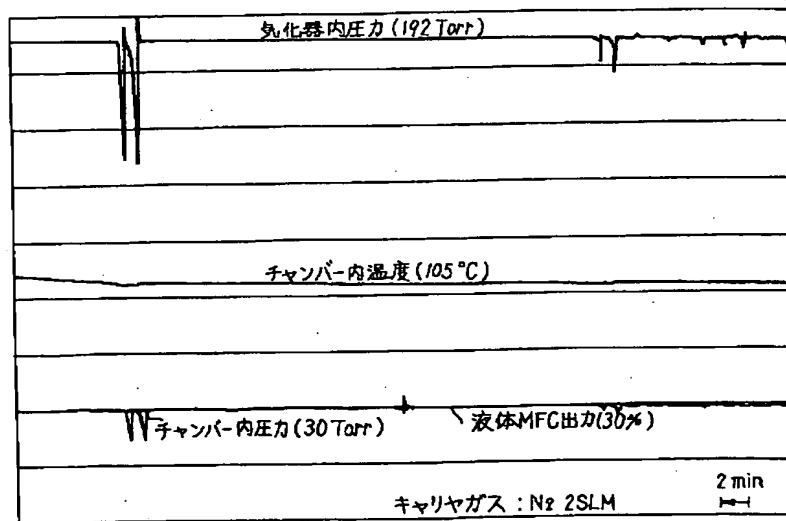 気化器内圧力(192Torr)
チャンバー内温度(105°C)
チャンバー内圧力(30Torr)
液体MFC出力(30%)
キャリヤガス:N2 2SLM
2min